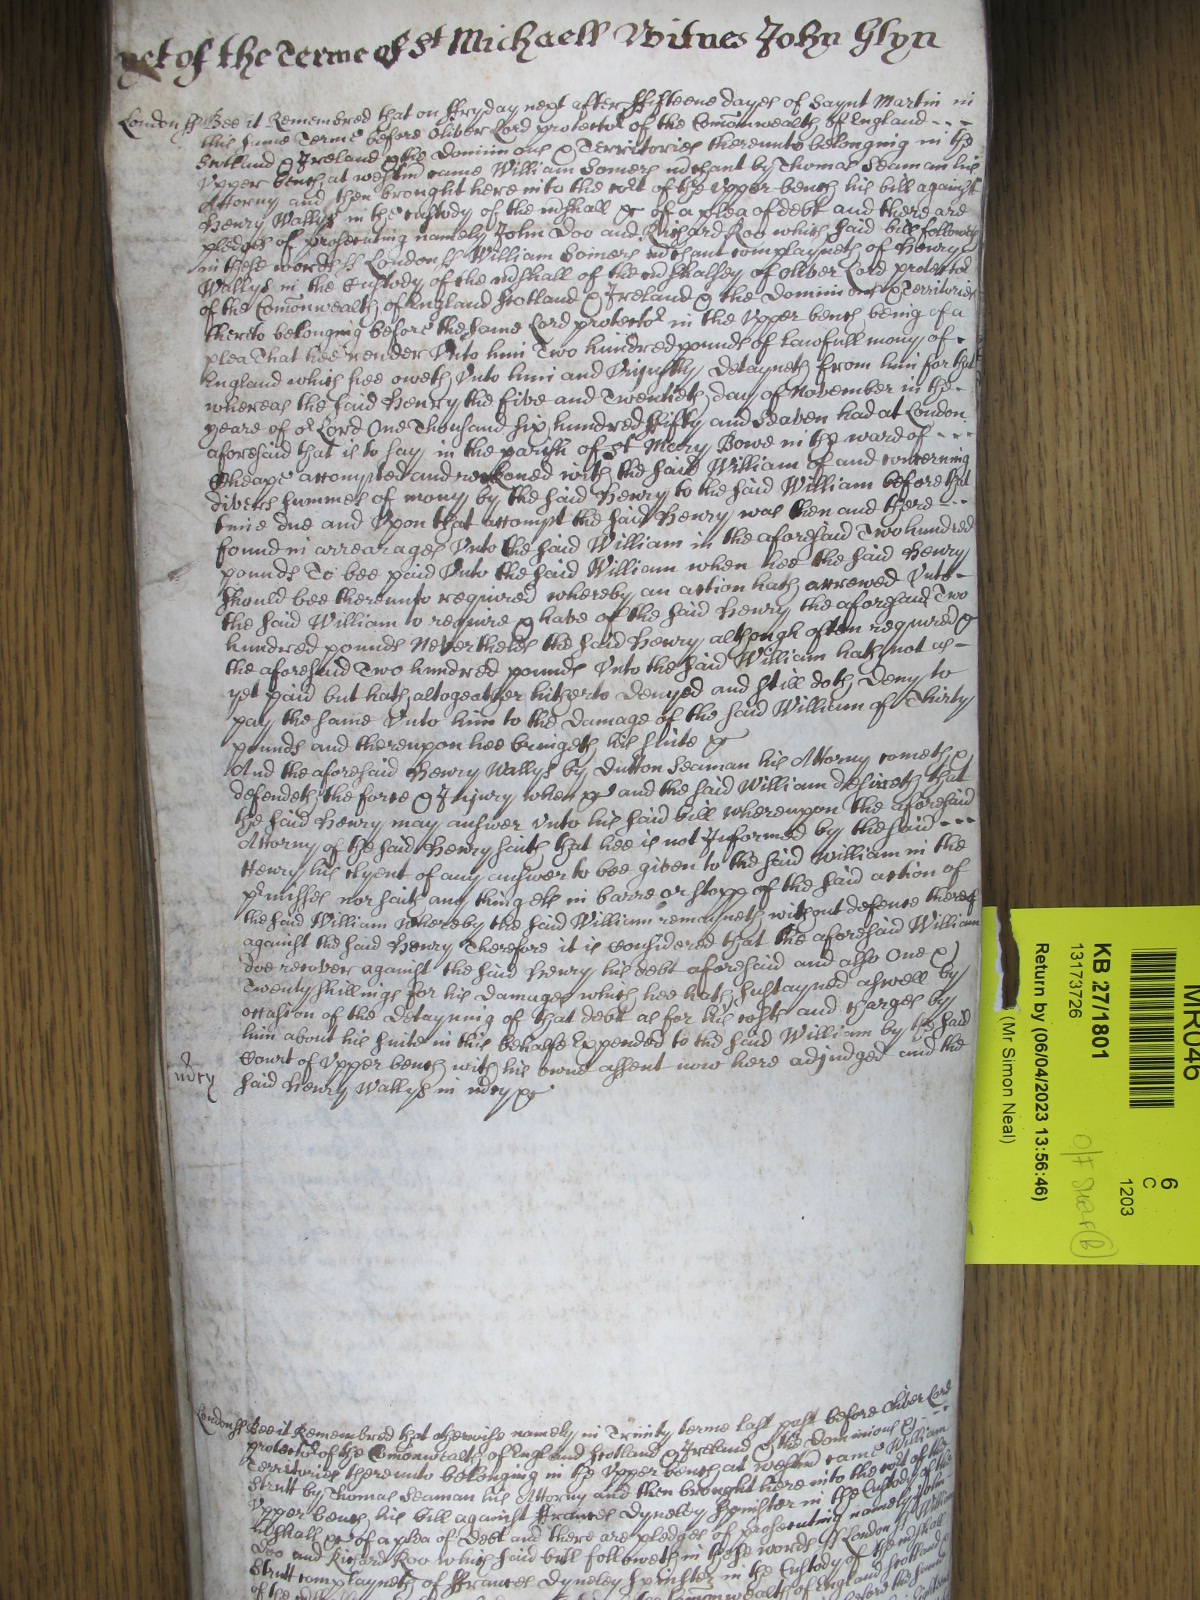 yet of the Terme of St Michaell Witnes John Glyn
London ss Bee it Remembred that on ffryday next after ffifteene dayes of Saynt Martin in
this same Terme before Oliver Lord protector of the Comonwealth of England ---
Scotland & Ireland & the Dominions & Territories thereunto belonging in the
Upper bench at westm came William Somers mchant by Thomas Seaman his
Attorny and then brought here into the cort of the Upper bench his bill against
Henry Wallys in the custody of the mshall &c of a plea of debt and there are
pledges of prosecuting namely John Doo and Richard Roo which said bill followeth
in these words ss London ss William Somers mchant complayneth of Henry
Wallys in the Custody of the mshall of the mshalsey of Oliver Lord protector
of the Comonwealth of England Scotland & Ireland & the Dominions & Territories
thereto belonging before the same Lord protector in the Upper bench being of a
plea That hee render Unto him Two hundred pounds of lawfull mony of
England which hee oweth Unto him and Uniustly Detayneth from him for that
whereas the said Henry the five and Twentieth day of November in the -
yeare of or Lord One Thousand six hundred ffifty and Seaven had at London
aforesaid that is to say in the parish of St Mary Bowe in the ward of ---
Cheape accompted and reckoned with the said William of and concerning
divers summes of mony by the said Henry to the said William before that
time due and Upon that accompt the said Henry was then and there --
found in arrearages Unto the said William in the aforesaid Two hundred
pounds To bee paid Unto the said William when hee the said Henry
should bee thereunto required whereby an action hath accrewed Unto -
the said William to require & have of the said Henry the aforesaid Two
hundred pounds Neverthelesse the said Henry although often required &c
the aforesaid Two hundred pounds Unto the said William hath not as -
yet paid but hath altogeather hitherto Denyed and still doth Deny to
pay the same Unto him to the Damage of the said William of Thirty
pounds and thereupon hee bringeth his suite &c
And the aforesaid Henry Wallys by Dutton Seaman his Attorny cometh &
defendeth the force & Injury when &c and the said William desireth that
the said Henry may answer Unto his said bill whereupon the aforesaid
Attorny of the said Henry saith that hee is not Informed by the said ---
Henry his clyent of any answer to bee given to the said William in the
pmisses nor saith any thing els in barre or stopp of the said action of
the said William whereby the said William remayneth without defence thereof
against the said Henry Therefore it is Considered that the aforesaid William
doe recover against the said Henry his debt aforesaid and also One &
Twenty shillings for his Damages which hee hath sustayned aswell by
occasion of the Detayning of that debt as for his costs and charges by
him about his suite in this behalfe Expended to the said William by the said
Court of Upper bench with his owne assent now here adjudged and the
mcy
said Henry Wallys in mcy &c
London ss Bee it Remembred that otherwise namely in Trinity terme last past before Oliver Lord
protector of the Comonwealth of England Scotland & Ireland & the Dominions & --
Territories thereunto belonging in the Upper bench at westm came William
Strutt by Thomas Seaman his Attorny and then brought here into the cort of the
Upper bench his bill against ffrances Dyneley Spinster in the Custody of the
mshall &c of a plea of Debt and there are pledges of prosecuting namely John
Doo and Richard Roo which said bill followeth in these words ss London ss William
Strutt complayneth of ffrances Dyneley Spinster in the Custody of the mshall
of the Comonwealth of England Scotland &
before the same
MR046
KB 27/1801
13173726
Return by (06/04/2023 13:56:46)
(Mr Simon Neal)
6
C
1203